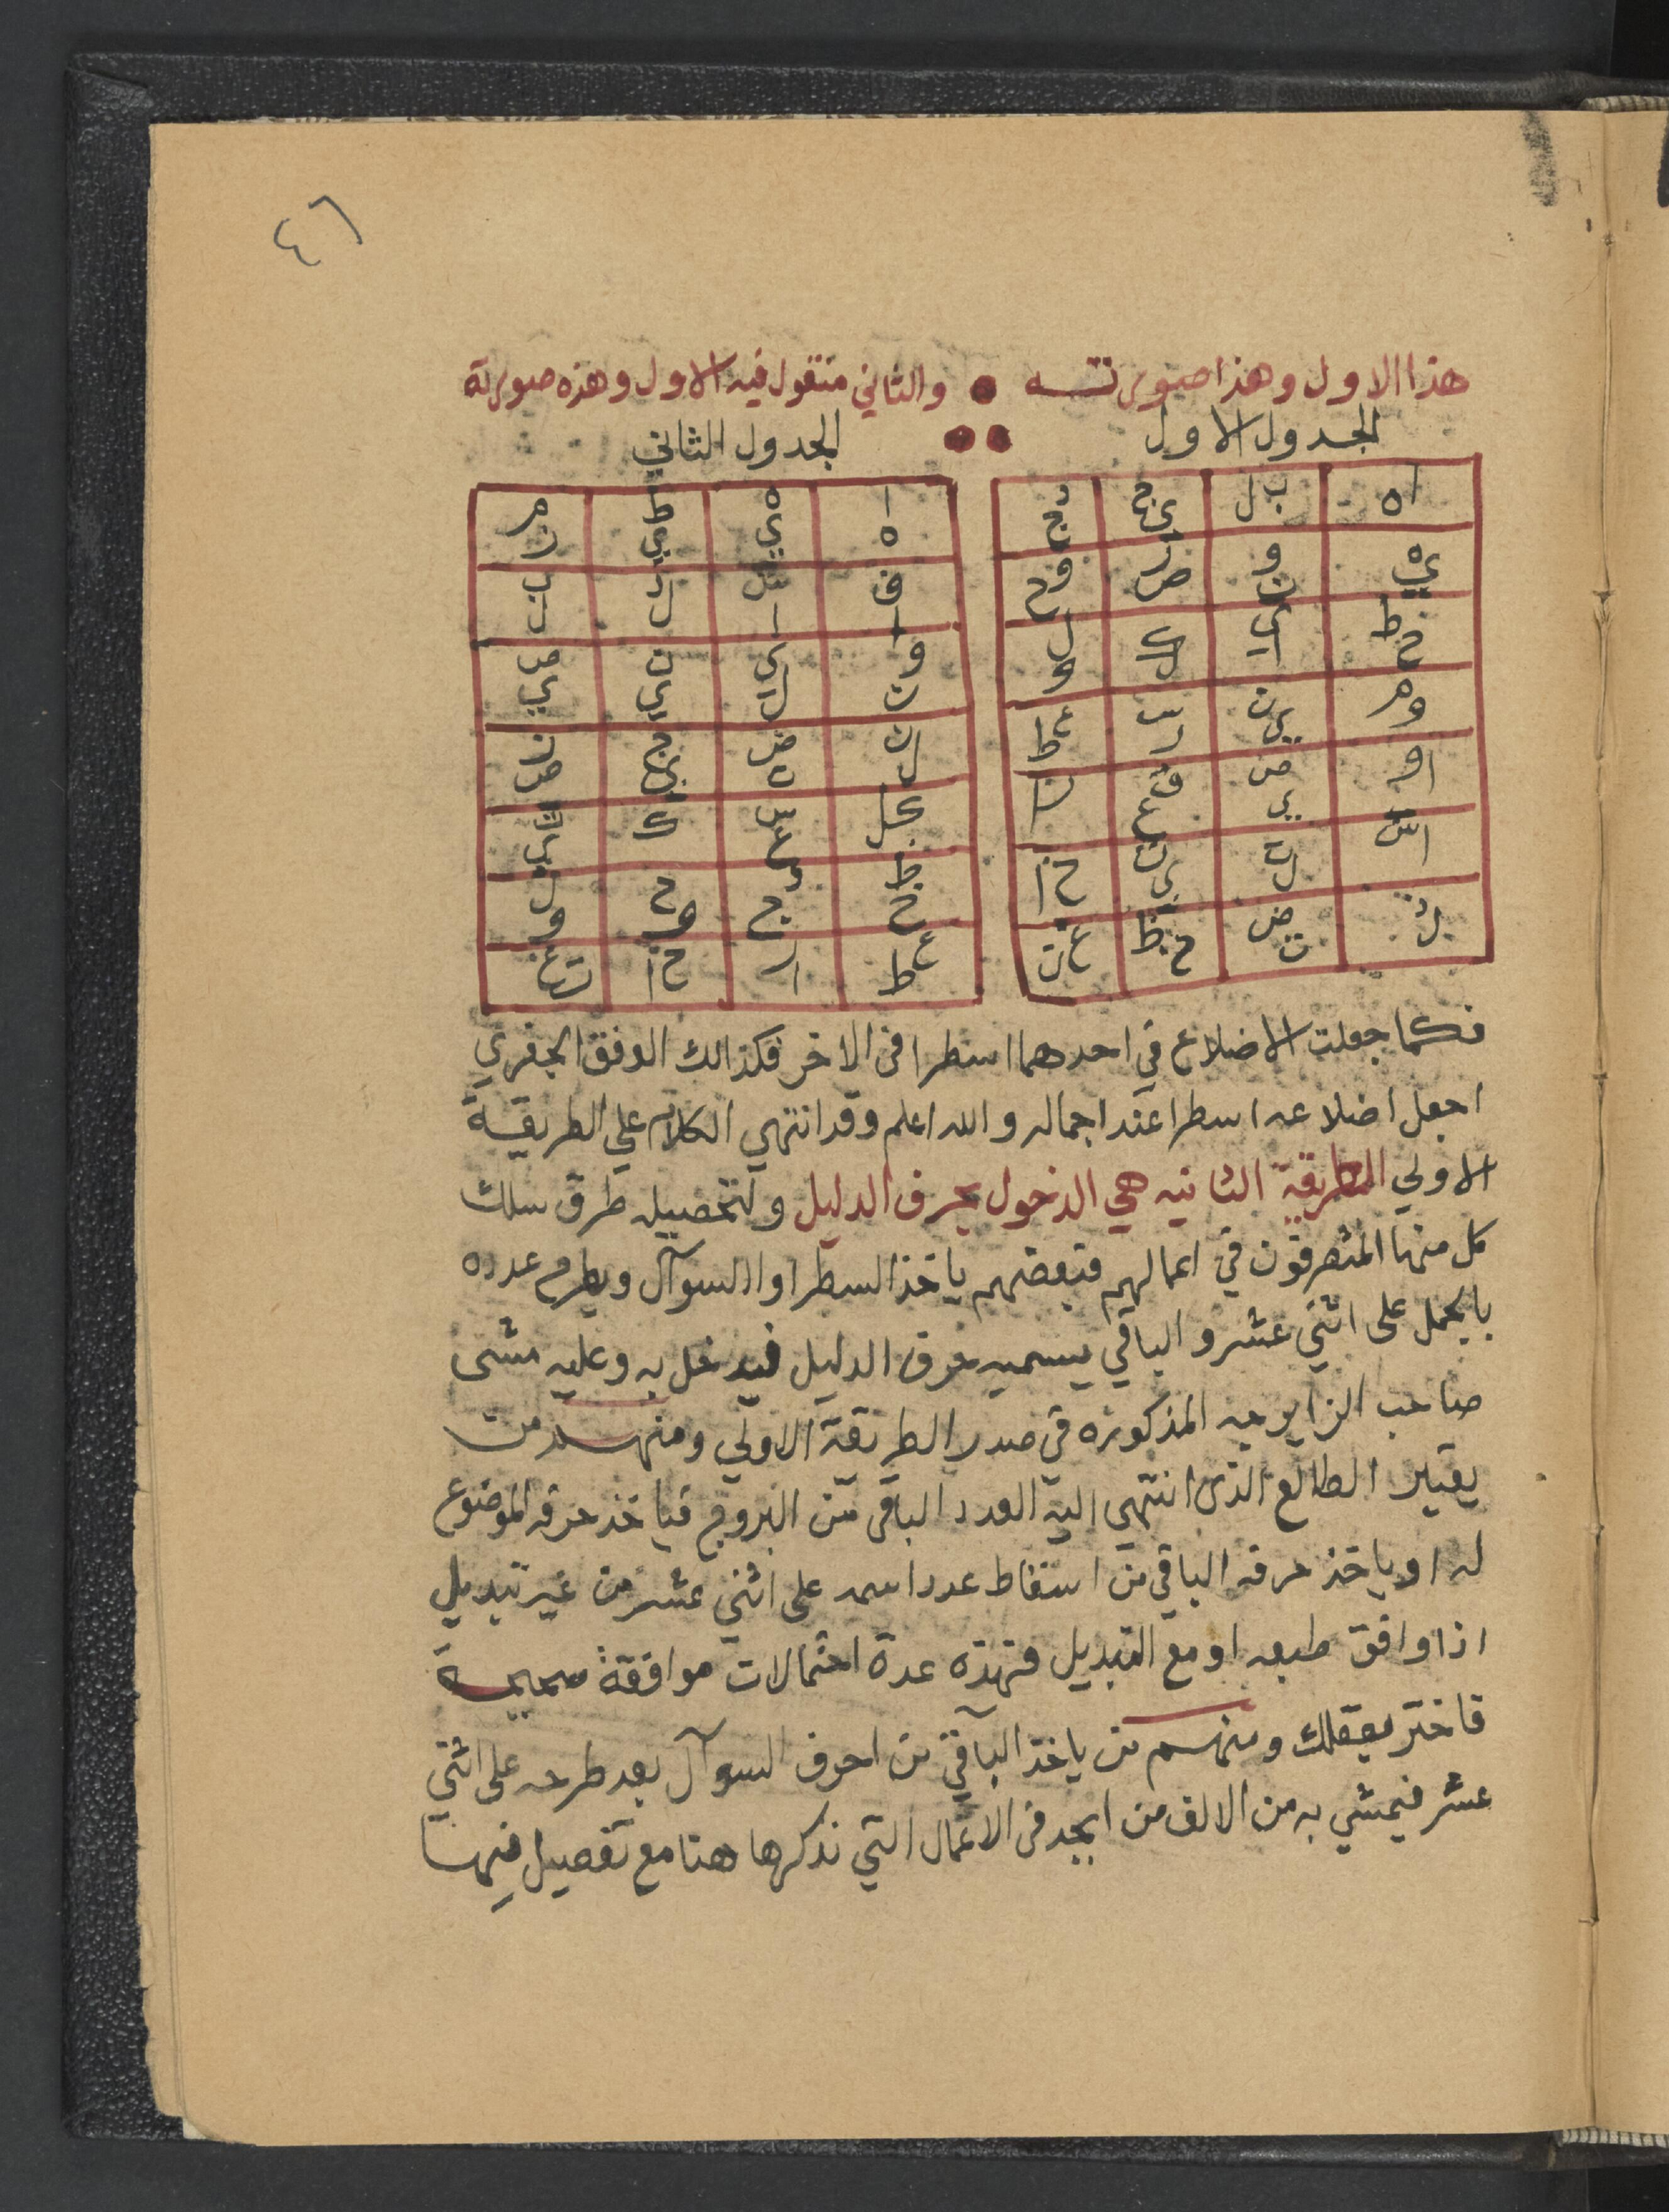 ٤٦
هذا الاول وهذا صورتـــه • والثاني منقول فيه الاول وهذه صورته
الجدول الاول •• الجدول الثاني
اه | ب ل | ي ج
ه ي | و ن | ص
ط ح
و م | ن ي
او | ص ي
ا | ه ي | ط ي | م ن
ه
و ن | ن ي | ص ي
ط ح
ع ط | ا ر | ح ا
فكما جعلت الاضلاع في احدهما اسطرا في الاخر فكذالك الوفق الجفري
اجعل اضلاعه اسطرا عند اجماله والله اعلم وقد انتهي الكلام علي الطريقة
الاولي الطريقة الثانيه هي الدخول بحرف الدليل ولتحصيله طرق سلك
كل منها المتصرفون في اعمالهم فبعضهم ياخذ السطر او السوآل ويطرح عدده
بالجمل على اثني عشر والباقي يسميه حرف الدليل فيدخل به وعليه مشى
صاحب الزايرجه المذكوره في صدر الطريقة الاولي ومنهـــم من
يعتبر الطالع الذى انتهي اليه العدد الباقى من البروج فياخذ حرفه الموضوع
له او ياخذ حرفه الباقي من اسقاط عدد اسمه على اثني عشر من غير تبديل
اذا وافق طبعه او مع التبديل فهذه عدة احتمالات موافقة صحيحـــة
فاختر بعقلك ومنهـــم من ياخذ الباقي من احرف السوآل بعد طرحه على اثني
عشر فيمشي به من الالف من ابجد فى الاعمال التي نذكرها هنا مع تفصيل فيهـا